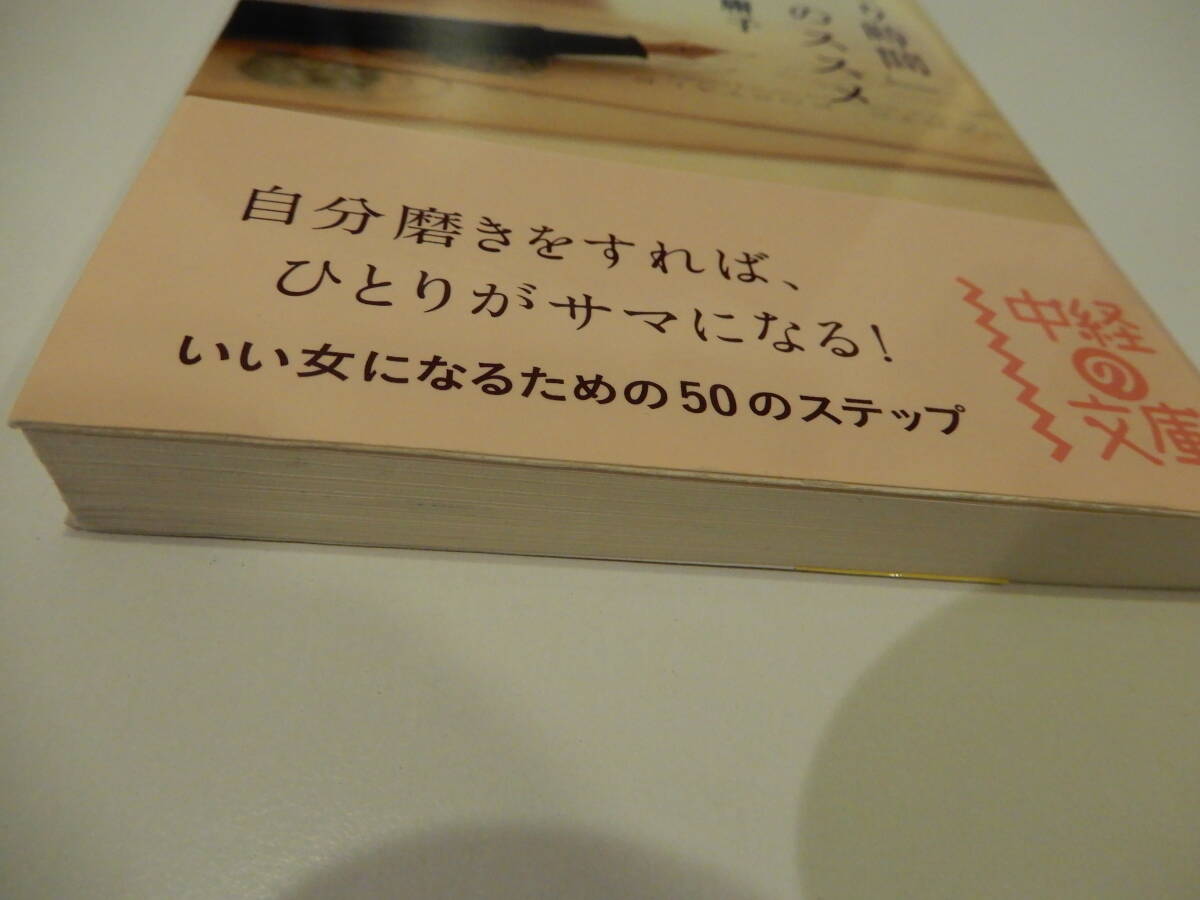 時間」
のススメ
子
自分磨きをすれば、
ひとりがサマになる!
いい女になるための50のステップ
中経
の
文庫